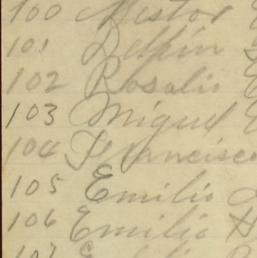 100 Nestor
101 Delfin
102 Rosalio
103 Miguel
104 Francisco
105 Emilio
106 Emilio H
107